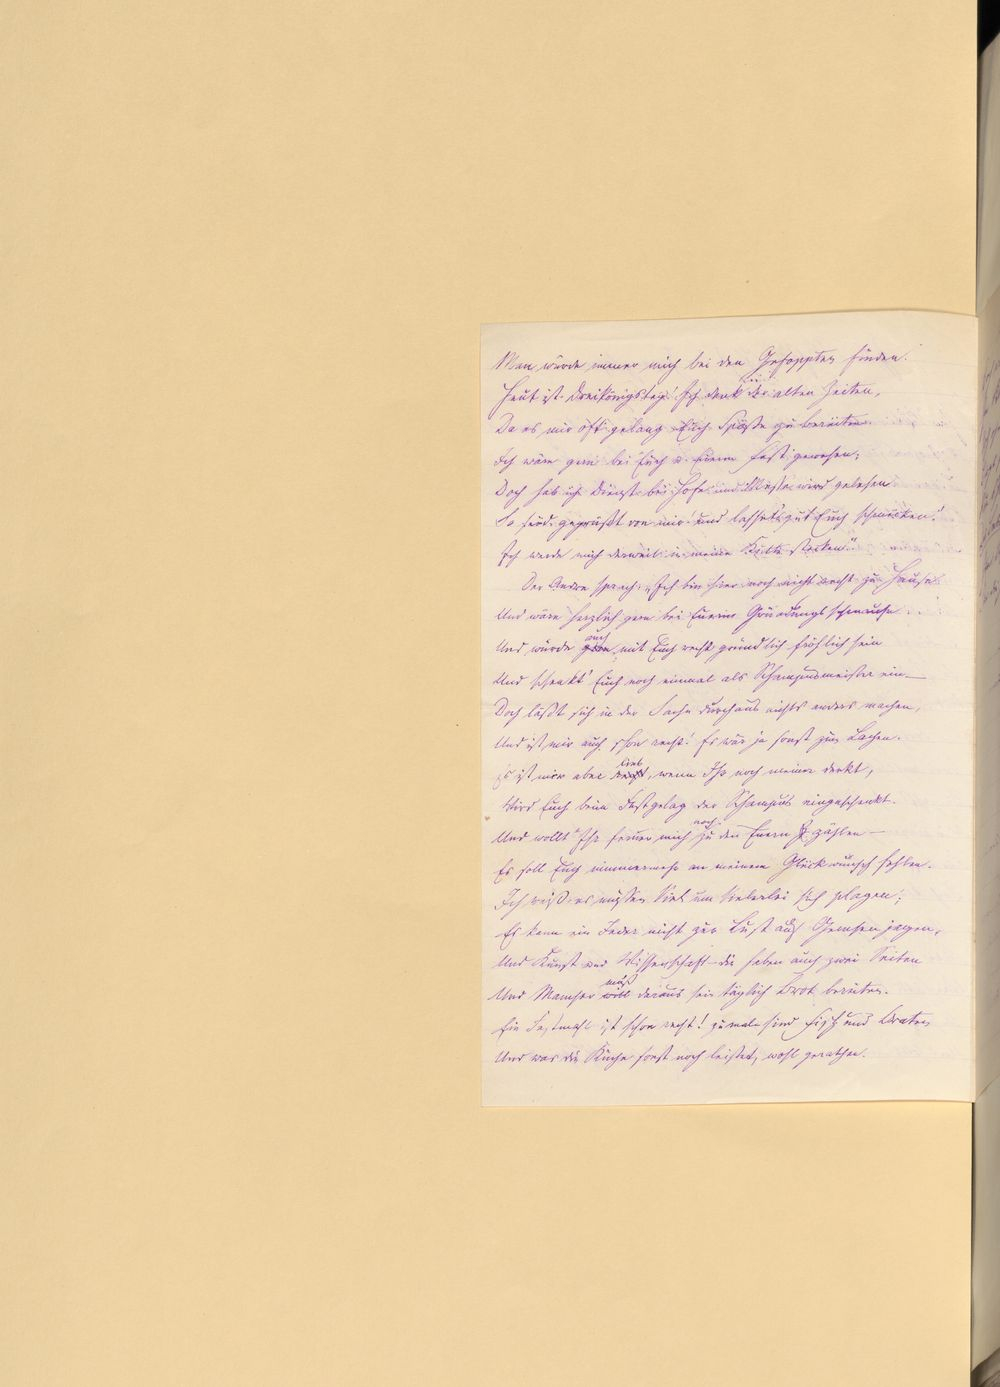 Man würde immer mich bei den Gefoppten finden.
Heut ist Dreikönigstag! Ich denk der alten Zeiten,
Da es mir oft gelang Euch Späße zu bereiten.
Ich wäre gern bei Euch u. Eurem Fest gewesen;
Doch hab ich Dienst bei Hofe und Messe wird gelesen
So seid gegrüßt von mir! und lasset's gut Euch schmecken!
Ich werde mich derweil in meine Kutte stecken."
Der Andre sprach: „Ich bin hier noch nicht recht zu Hause
Und wäre herzlich gern bei Eurem Gründungsschmause
Und würde auch mit Euch recht gründlich fröhlich sein
Und schenkt' Euch noch einmal als Schampusmeister ein—
Doch läßt sich in der Sache durchaus nichts anders machen,
Und ist mir auch schon recht! Es wär ja sonst zum Lachen.
Es ist mir aber lieb, wenn Ihr noch meiner denkt,
Wird Euch beim Festgelag der Schampus eingeschenkt.
Und wollt Ihr ferner mich noch zu den Euern zählen —
Es soll Euch nimmermehr an meinem Glückwunsch fehlen.
Ich weiß es müssen Viel um Vielerlei sich plagen;
Es kann ein Jeder nicht zur Lust auf Gemsen jagen,
Und Kunst und Wissenschaft – die haben auch zwei Seiten
Und Mancher muß daraus sein täglich Brot bereiten.
Ein Festmahl ist schon recht! zumal sind Fisch und Braten
Und was die Küche sonst noch leistet, wohl gerathen.